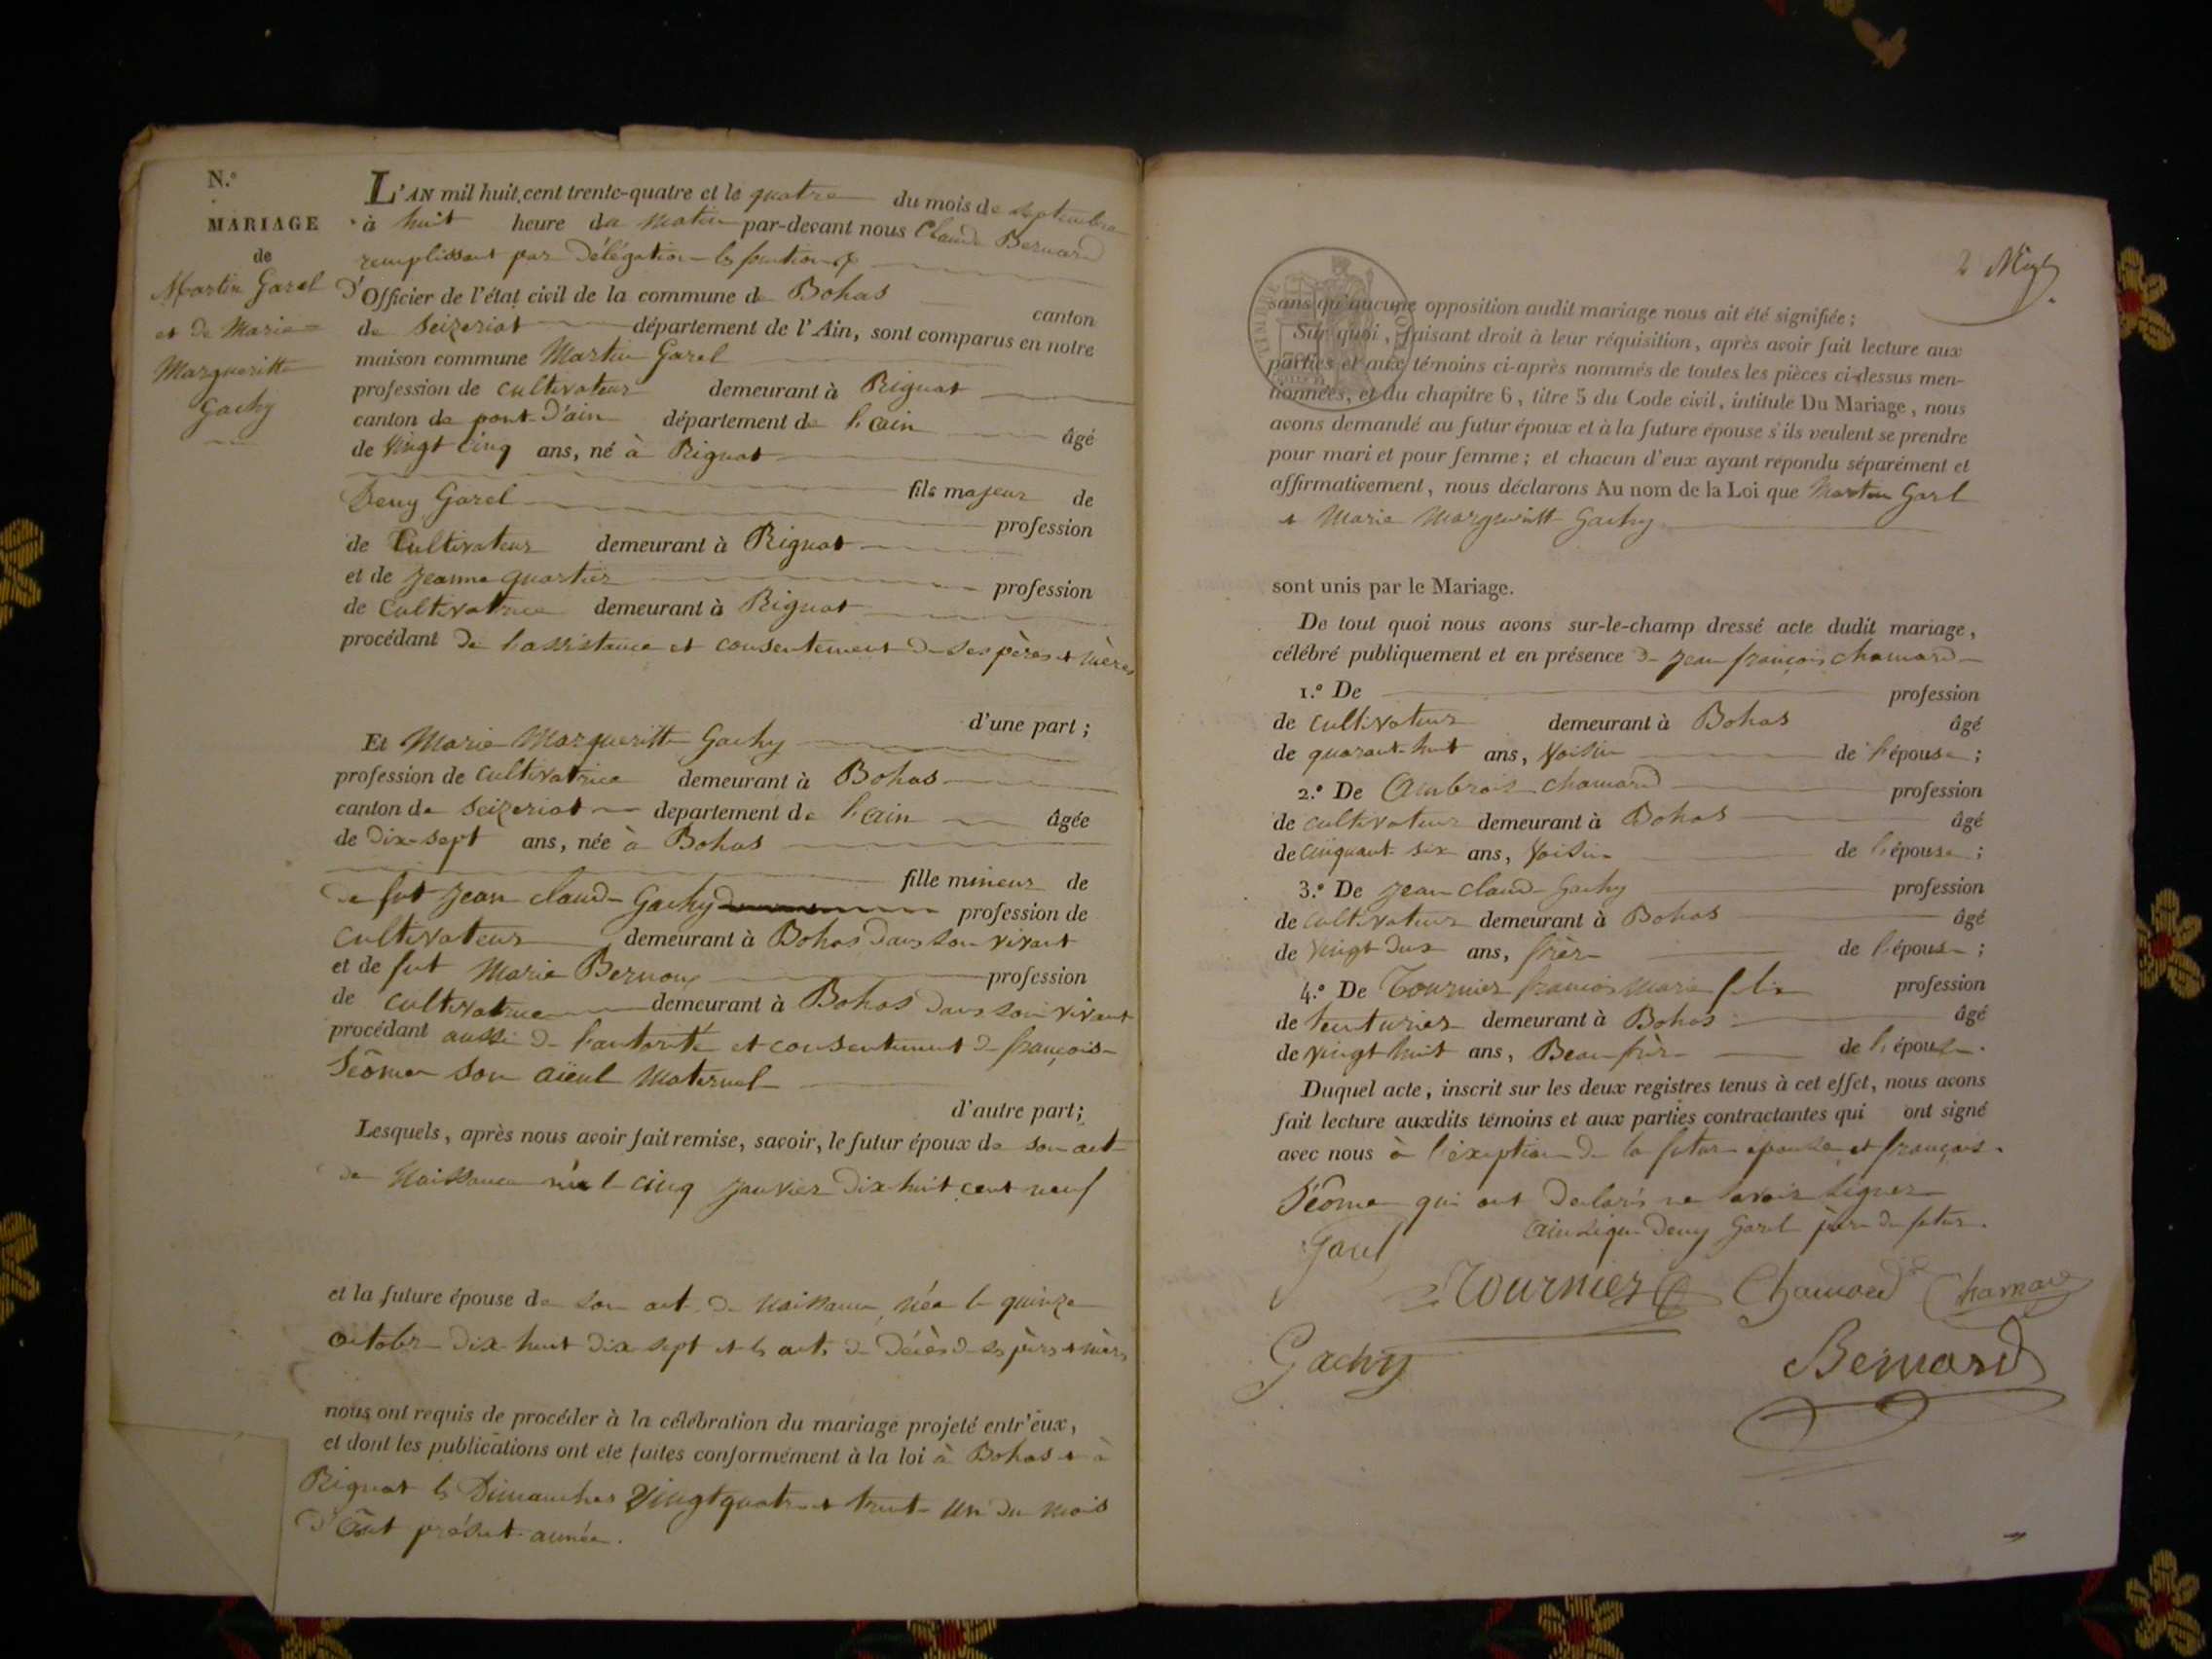 N.º
MARIAGE
de
Martin Garel
et de Marie
Margueritte
Gachy
L'AN mil huit cent trente-quatre et le quatre du mois de septembre
à huit heure du matin par-devant nous Claude Bernard
remplissant par Délégation les fonctions
d'Officier de l'état civil de la commune de Bohas canton
de Seizeriat département de l'Ain, sont comparus en notre
maison commune Martin Garel
profession de cultivateur demeurant à Rignat
canton de pont D'ain département de l'ain âgé
de vingt cinq ans, né à Rignat
fils majeur de
Deny Garel profession
de Cultivateur demeurant à Rignat
et de Jeanne quartier profession
de Cultivatrice demeurant à Rignat
procédant de l'assistance et consentement de ses pères et mères
d'une part ;
Et Marie Margueritte Gachy
profession de cultivatrice demeurant à Bohas
canton de Seizeriat departement de l'ain âgée
de dix-sept ans, née à Bohas
fille mineur de
de fut Jean claude Gachy profession de
cultivateur demeurant à Bohas dans son vivant
et de fut Marie profession
de cultivatrice demeurant à Bohas dans son vivant
procédant aussi de l'autorité et consentement de françois
Séome son aieul Maternel
d'autre part ;
Lesquels, après nous avoir fait remise, savoir, le futur époux de son act
de Naissance né le cinq janvier dix huit cent neuf
et la future épouse de son act de Naissance, née le quinze
octobre dix huit dix sept et les acts de décès de ses pères et mères
nous ont requis de procéder à la célébration du mariage projeté entr'eux,
et dont les publications ont été faites conformément à la loi à Bohas et à
Rignat les Dimanches vingt quatre et trente un du mois
d'Out présent année.
2
sans qu'aucune opposition audit mariage nous ait été signifiée ;
Sur quoi, faisant droit à leur réquisition, après avoir fait lecture aux
parties et aux témoins ci-après nommés de toutes les pièces ci-dessus men-
tionnées, et du chapitre 6, titre 5 du Code civil, intitule Du Mariage, nous
avons demandé au futur époux et à la future épouse s'ils veulent se prendre
pour mari et pour femme ; et chacun d'eux ayant répondu séparément et
affirmativement, nous déclarons Au nom de la Loi que Martin Garel
et Marie Margueritte Gachy
sont unis par le Mariage.
De tout quoi nous avons sur-le-champ dressé acte dudit mariage,
célébré publiquement et en présence de Jean françois chamard
1.º De profession
de cultivateur demeurant à Bohas âgé
de quarant-huit ans, voisin de l'épouse ;
2.º De Ambrois chamard profession
de cultivateur demeurant à Bohas âgé
de cinquant six ans, voisin de l'épouse ;
3.º De Jean claude Gachy profession
de cultivateur demeurant à Bohas âgé
de vingt deux ans, frère de l'épouse ;
4.º De Tournier françois Marie felix profession
de teinturier demeurant à Bohas âgé
de vingt huit ans, Beau frère de l'épouse.
Duquel acte, inscrit sur les deux registres tenus à cet effet, nous avons
fait lecture auxdits témoins et aux parties contractantes qui ont signé
avec nous à l'exeption de la futur épouse et françois
Séome qui ont déclaré ne savoir signer
ainsi que Deny Garel père du futur.
Garel
Tournier Chamard Chamard
Gachy Bernard